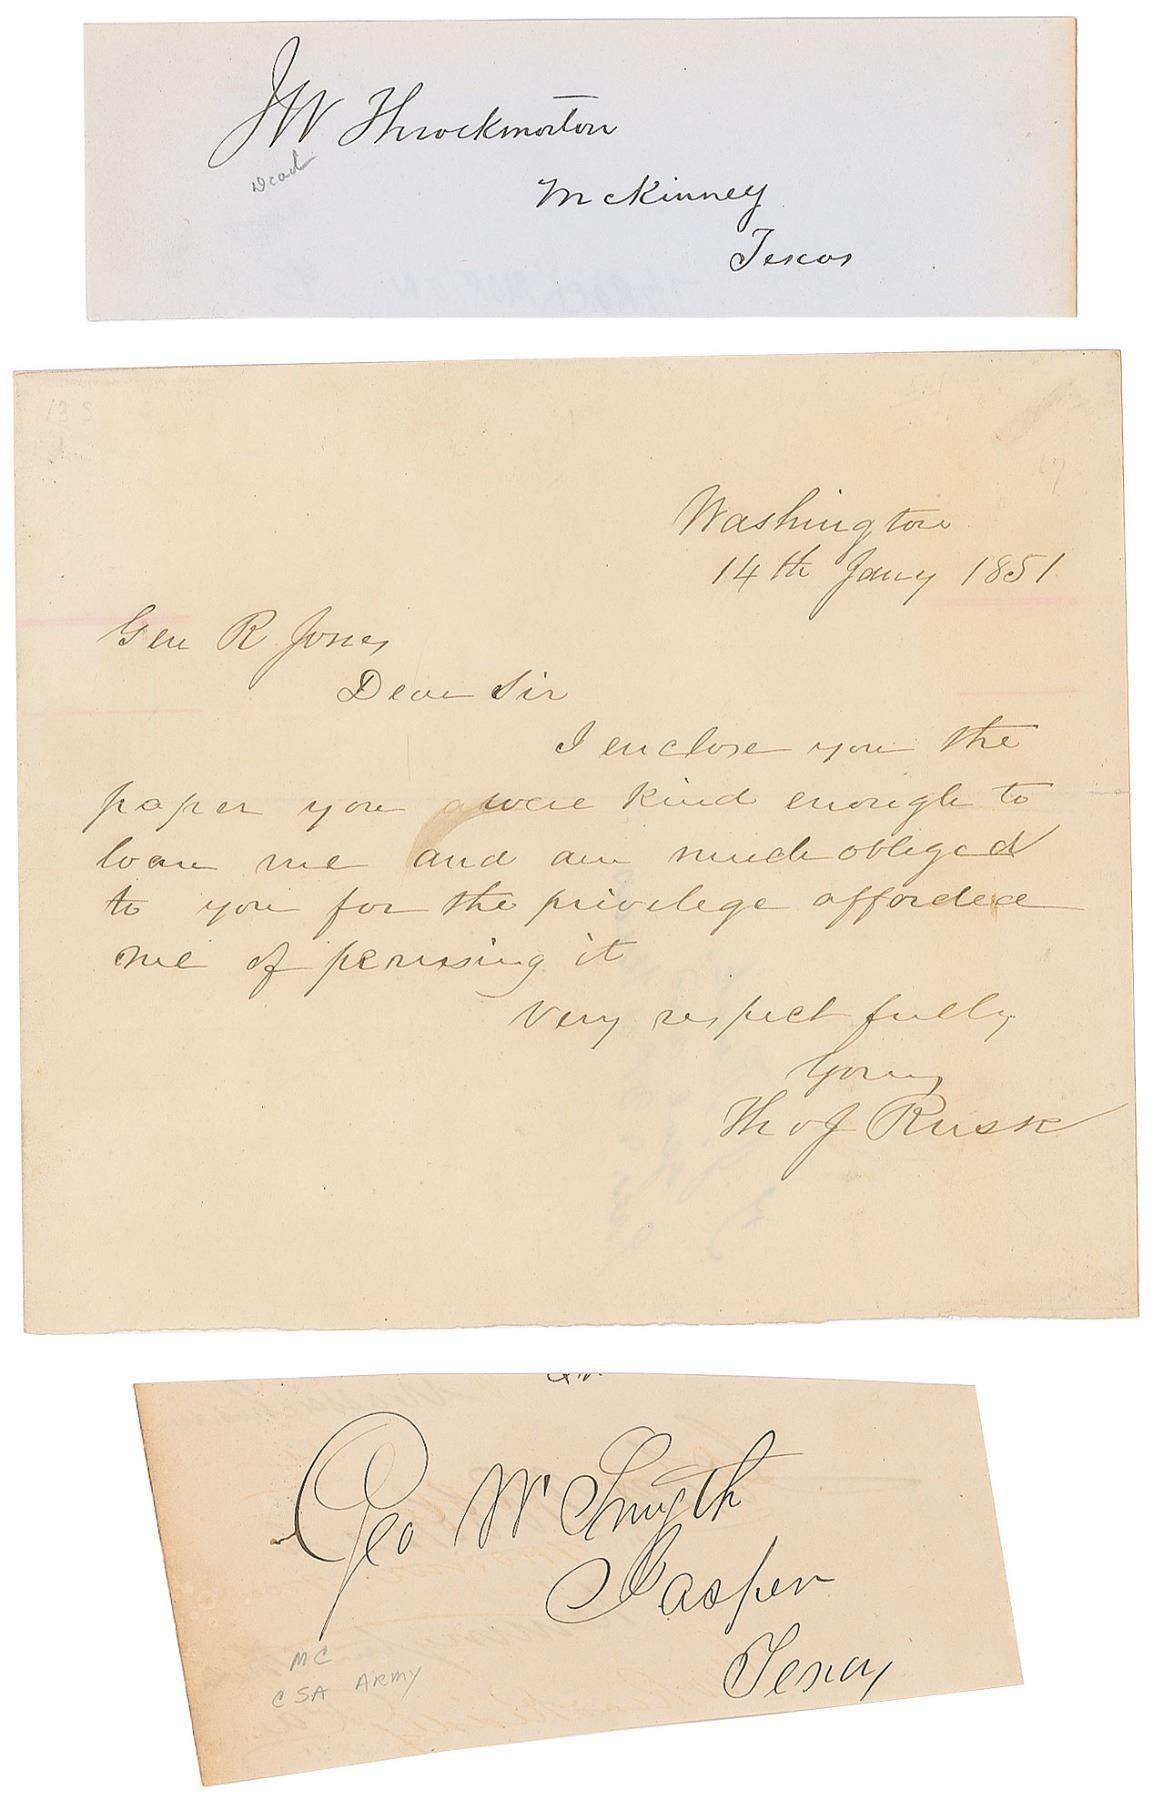 JW Throckmorton
Dead
McKinney
Texas
13 S
17
Washington
14th Jany 1851
Gen R Jones
Dear Sir
I enclose you the
paper you were kind enough to
loan me and am much obliged
to you for the privilege afforded
me of perusing it
Very respectfully
Yours
Tho J Rusk
Geo W Smyth
Jasper
Texas
MC
CSA ARMY